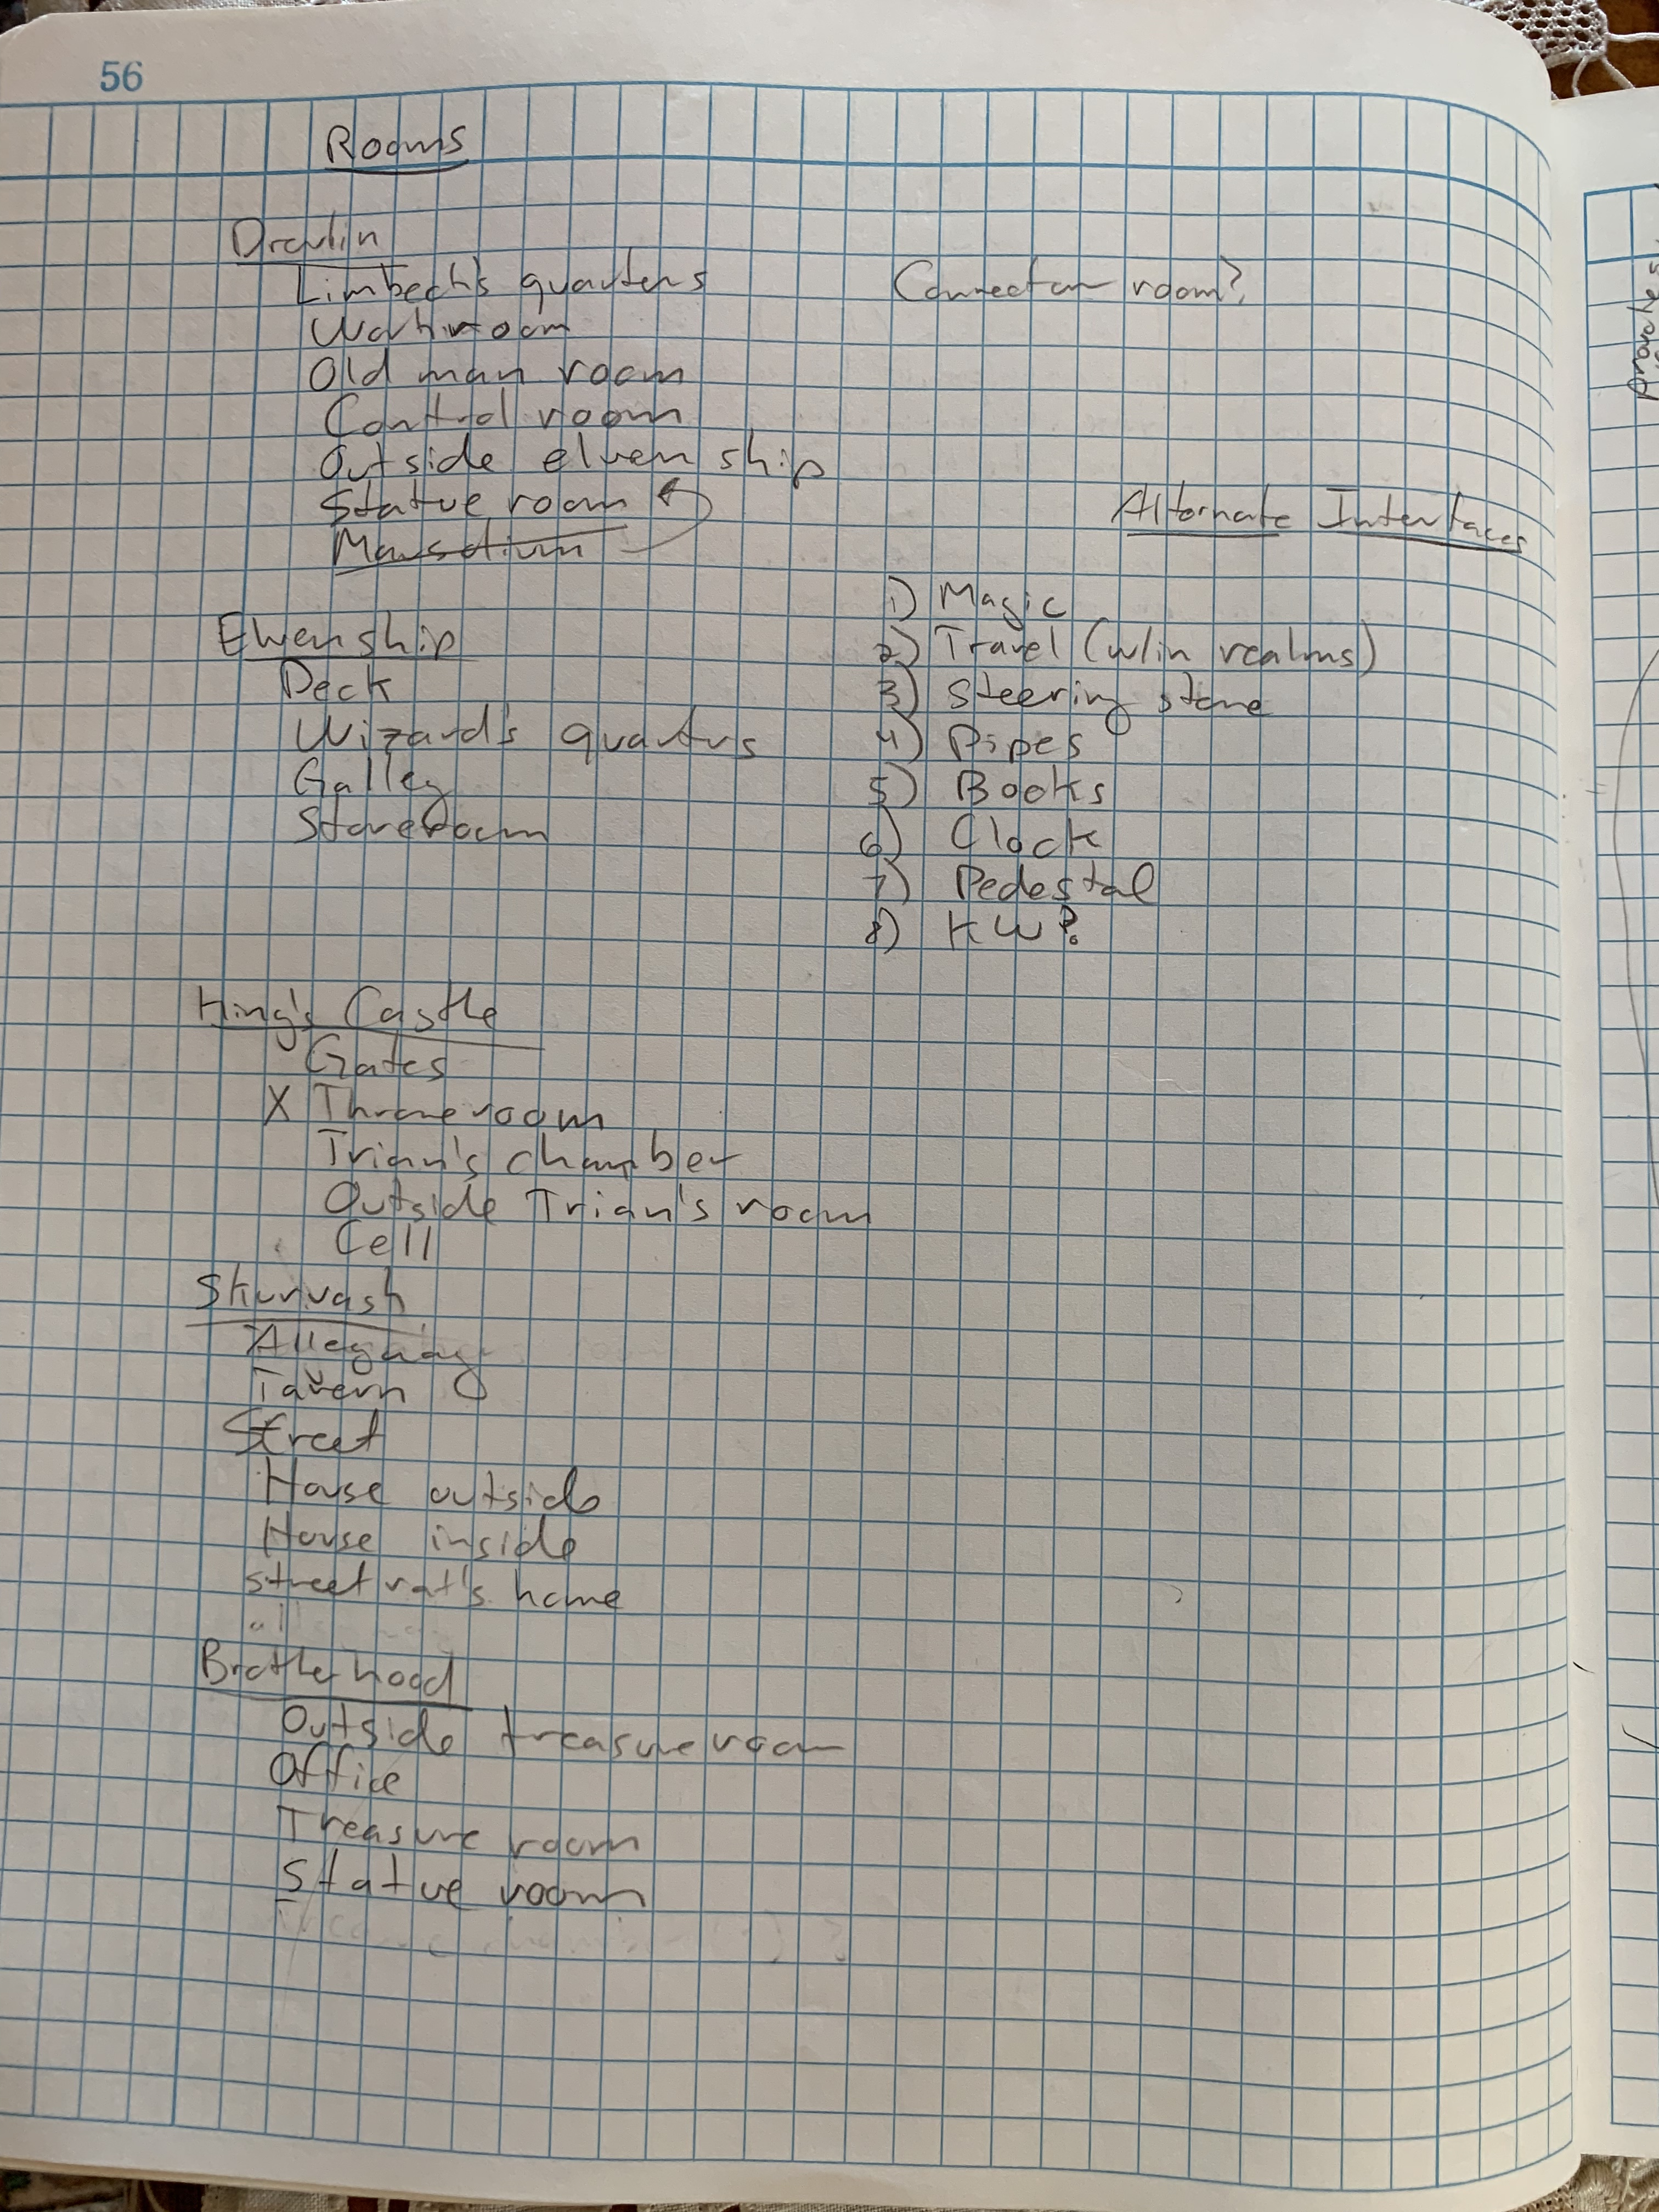 56
Rooms
Drevlin
Limbeck's quarters
Workroom
Old man room
Control room
Outside elven ship
Statue room
Mausolium
Connector room?
Alternate Interfaces
1) Magic
2) Travel (w/in realms)
3) Steering stone
4) Pipes
5) Books
6) Clock
7) Pedestal
8) KW?
Elven ship
Deck
Wizard's quarters
Galley
Storeroom
King's Castle
Gates
X Throne room
Trian's chamber
Outside Trian's room
Cell
Skurvash
Alleyway
Tavern
Street
House outside
House inside
Street rat's home
Brotherhood
Outside treasure room
Office
Treasure room
Statue room